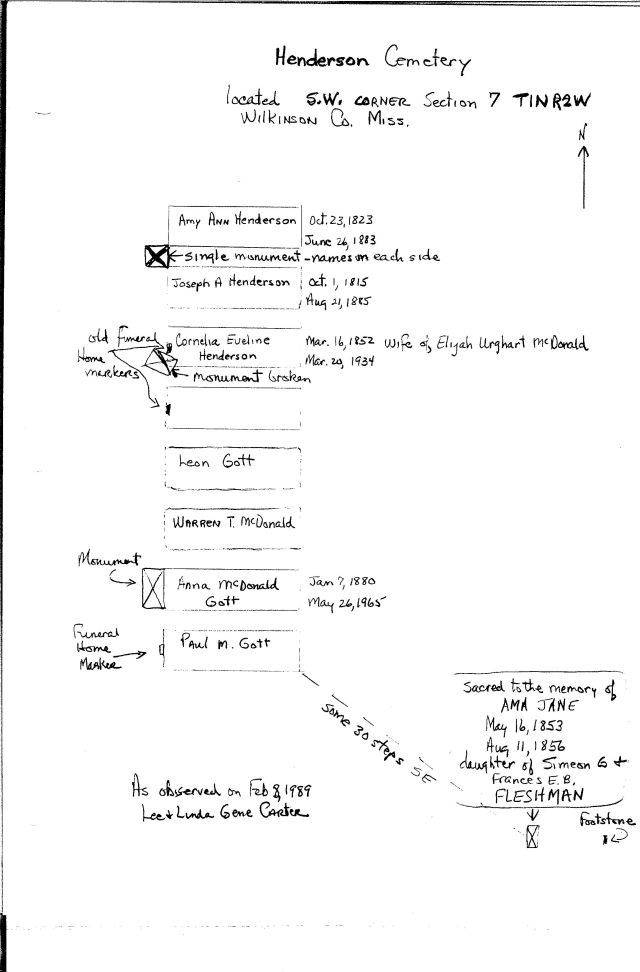 Henderson Cemetery
located S.W. CORNER Section 7 T1N R2W
WILKINSON Co. MISS.
N
Amy ANN Henderson Oct. 23, 1823
June 26, 1883
single monument - names on each side
Joseph A Henderson Oct. 1, 1815
Aug 21, 1885
old Funeral
Home
markers
Cornelia Eveline
Henderson
Mar. 16, 1852 Wife of Elijah Urghart McDonald
Mar. 20, 1934
monument broken
Leon Gott
WARREN T. McDonald
Monument
Anna McDonald
Gott
Jan 7, 1880
May 26, 1965
Funeral
Home
Marker
PAUL M. Gott
some 30 steps SE
Sacred to the memory of
AMA JANE
May 16, 1853
Aug 11, 1856
daughter of Simeon G &
Frances E. B.
FLESHMAN
Footstone
As observed on Feb 8, 1989
Lee & Linda Gene CARTER